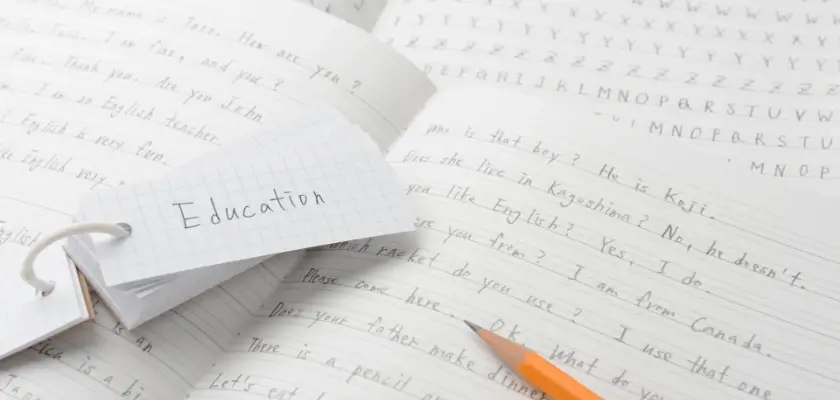 My name is Taro. How are you?
Hello, Taro. I am fine, and you?
Fine. Thank you. Are you John
I am an English teacher.
English is very fun.
like English very
English
is an
ica is a bi
Japa
Education
W W W W
X X X X X X
Y Y Y Y Y Y Y Y
Z Z Z Z Z Z Z Z Z
D E F G H I J K L M N O P Q R S T U V W
M N O P Q R S T U
M N O P
who is that boy? He is Keji.
Does she live in Kagoshima? No, he doesn't.
you like English? Yes, I do.
are you from? I am from Canada.
Which racket do you use? I use that one
Please come here. Ok. What do you
Does your father make dinner
There is a pencil
Let's eat